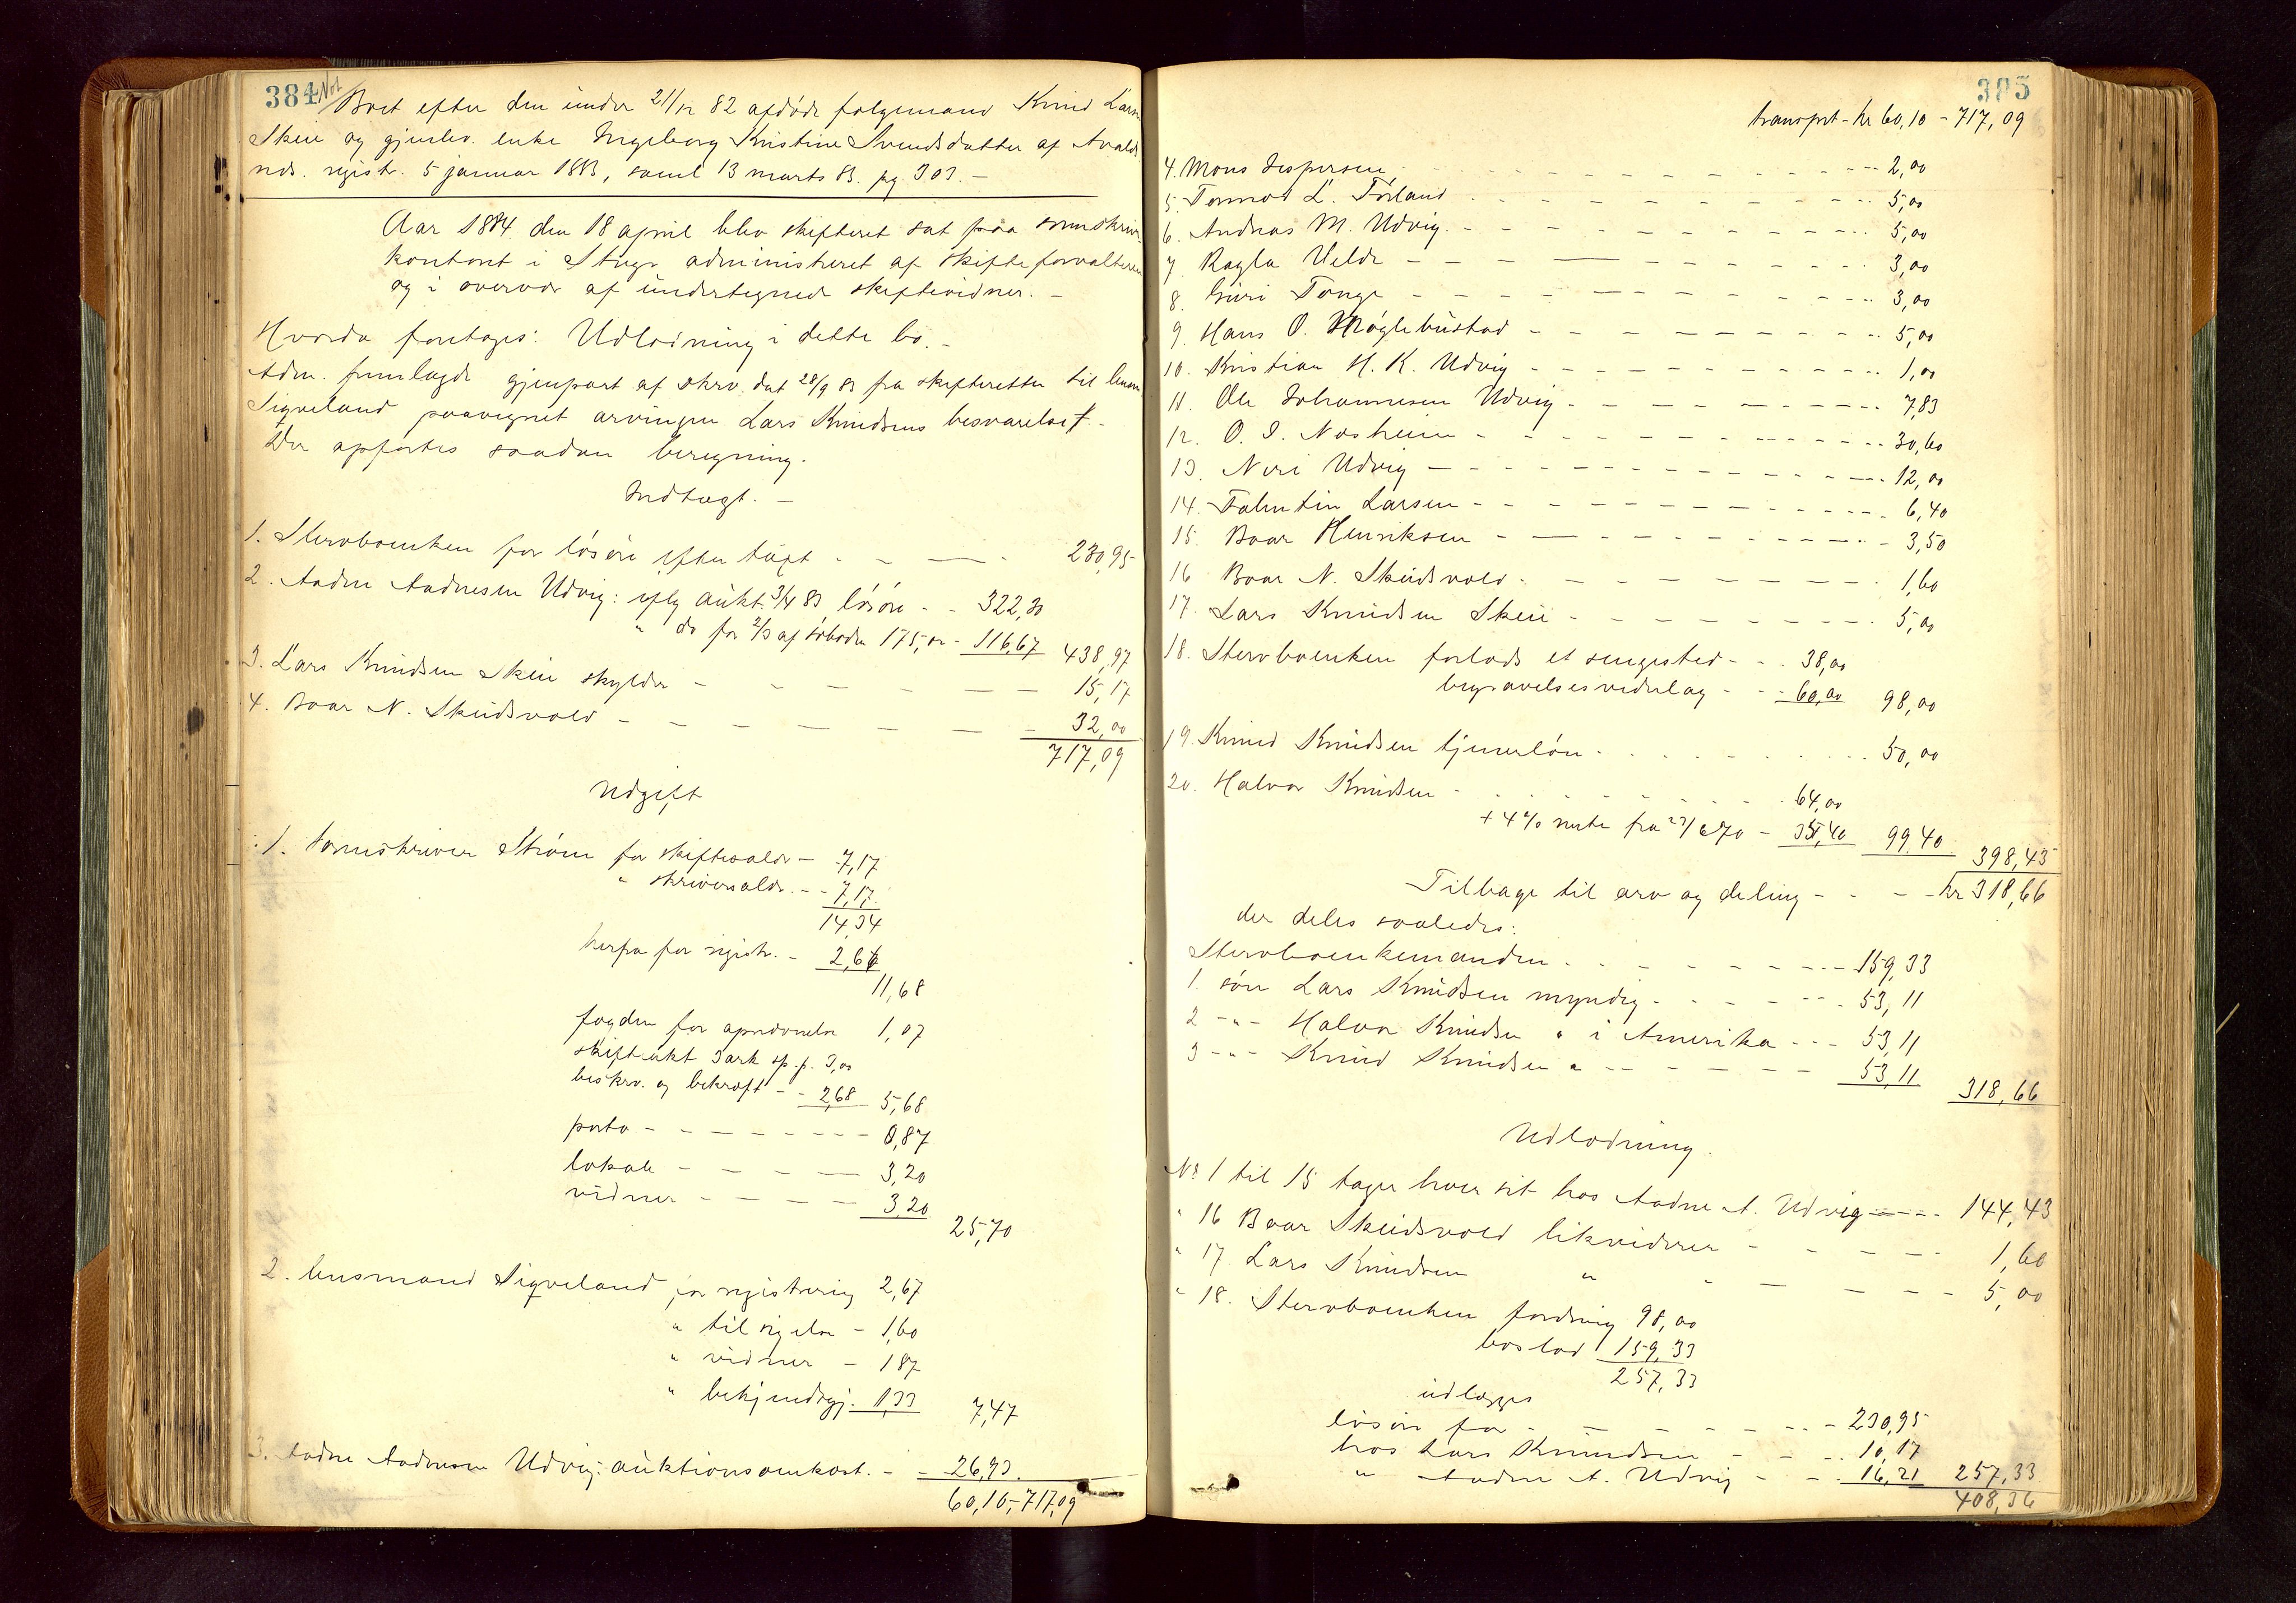 384
Boet efter den under 21/12 82 afdøde følgemand Knud Larsen
Skeie og gjenlev. enke Ingeborg Kristine Svendsdatter af Avalds
nds. registr. 5 januar 1883, saml 13 marts 83. pg. 303. –
Aar 1884 den 18 april blev skifteret sat paa sorenskriver
kontoret i Stuge administreret af skifteforvalteren
og i overvær af undertegnede skiftevidner. –
Hvorda foretages: Udlodning i dette bo. –
Adm. fremlagde gjenpart af skrv. dat 28/9 83 fra skifteretten til lensm
Sigveland paategnet arvingen Lars Knudsens besvarelse. –
Der opførtes saadan beregning.
Indtægt. –
1. Stervboenken for løsøre efter taxt - - — - 230,95
2. Aadne Aadnesen Udvig: iflg aukt. 3/4 83 løsøre - - 322,30
" do for 2/3 af søboden 175,00 - 116,67 438,97
3. Lars Knudsen Skeie skylder - - - - - — — 15,17
4. Baar N. Skeidsvold - - - - - — - 32,00
717,09
Udgift
1. Sorenskriver Strøm for skiftesalær - 7,17
" skriversalær. - - 7,17
14,34
herfra for registr. - 2,66
11,68
fogden for apndvnelse 1,07
skifteakt 3 ark sp.p. 3,00
beskrv. og bekræft - - 2,68 5,68
porto - - - - - - - - 0,87
lokale - - - — — 3,20
vidner - - - - — 3,20
25,70
2. lensmand Sigveland for registrering 2,67
" tilsigelse - 1,60
" vidner - 1 87
" bekjendtgj. 1,33 7,47
3. Aadne Aadnesen Udvig: auktionsomkost. - - 26,93
60,10 - 717,09
385
transport - kr 60,10 - 717,09
4. Mons Jespersen, - - - - - - - 2,00
5. Tormod L. Førland - - - - - - - 5,00
6. Andreas M. Udvig. - - - - - - - 5,00
7. Ragla Velde - - - - - - - 3,00
8. Guri Tange - - - - - - - 3,00
9. Hans O. Møglebustad - - - - - - - 5,00
10. Kristian H. K. Udvig - - - - - - - 1,00
11. Ole Johannesen Udvig - - - - - - - 7,83
12. O. I. Næsheim - - - - - - - 30,60
13. Neri Udvig - - - - - - - 12,00
14. Falentin Larsen - - - - - - - 6,40
15. Baar Henriksen - - - - - - - 3,50
16 Baar N. Skeidsvold - - - - - - - 1,60
17. Lars Knudsen Skeie - - - - - - - 5,00
18. Stervboenken forlods et sengested - - - 38,00
begravelsesvederlag - - - 60,00 98,00
19. Knud Knudsen tjenerløn - - - - - - - 50,00
20. Halvor Knudsen - - - - - - - 64,00
+ 4% rente fra 23/6 70 - 35,40 99,40 398,43
Tilbage til arv og deling - - - - kr 318,66
der deles saaledes:
Stervboenkemanden - - - - - - - 159,33
1. søn Lars Knudsen myndig - - - - - - - 53,11
2 - " - Halvor Knudsen " i Amerika - - - 53,11
3 - " - Knud Knudsen " - - - - - - 53,11 318,66
Udlodning.
No 1 til 15 tager hver sit hos Aadne A. Udvig - - - - 144,43
" 16 Baar Skeidsvold likviderer - - - - - - 1,60
" 17 Lars Knudsen " - - - - - 5,00
" 18. Stervboenken fordring 98,00
boslod 159,33
257,33
udlægges
løsøre for - - - - - - - 230,95
hos Lars Knudsen - - - 10,17
" Aadne A. Udvig - - - 16,21 257,33
408,36